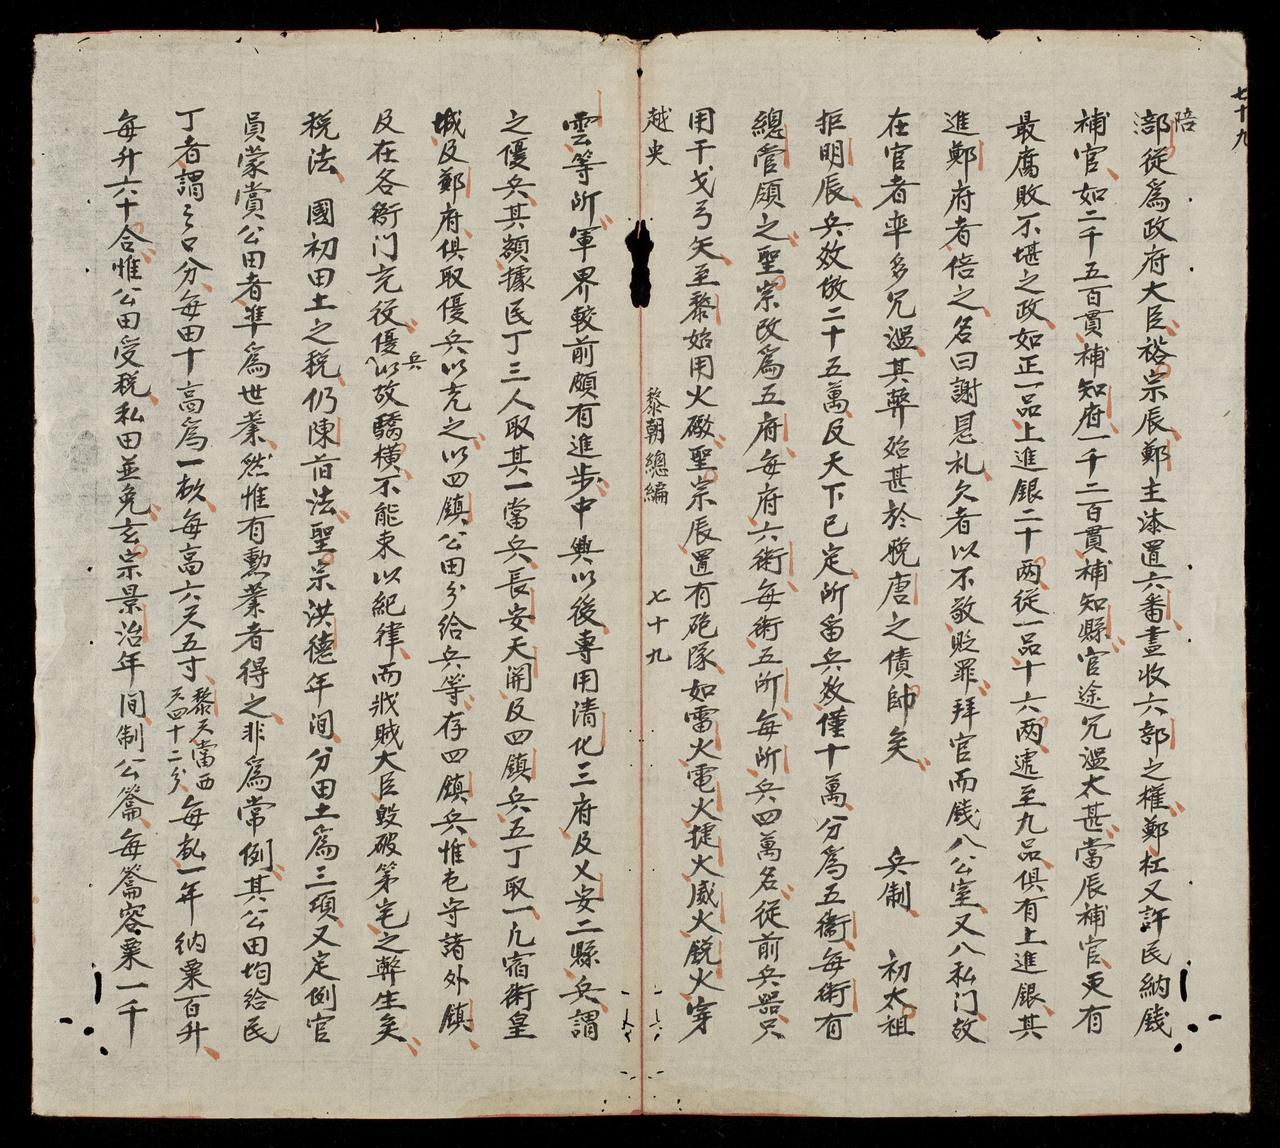 七十九
陪
部從爲政府大臣裕宗辰鄭主漆置六番盡收六部之權鄭杠又許民納錢
補官如二千五百貫補知府一千二百貫補知縣官途冗濫太甚當辰補官更有
最腐敗不堪之政如正一品上進銀二十兩從一品十六兩遞至九品俱有上進銀其
進鄭府者倍之名曰謝恩礼欠者以不敬貶罪拜官而錢入公室又入私门故
在官者率多冗濫其弊殆甚於晚唐之債帥矣 兵制 初太祖
拒明辰兵效倣二十五萬及天下已定所畱兵效僅十萬分爲五衛每衛有
總管領之聖宗改爲五府每府六衛每衛五所每所兵四萬名從前兵器只
用干戈弓矢至黎始用火礮聖宗辰置有砲隊如雷火電火捷火威火銳火穿
越史 黎朝總編 七十九
雲等所軍界較前頗有進步中興以後專用清化三府及乂安二縣兵謂
之優兵其額據民丁三人取其一當兵長安天開及四鎮兵五丁取一凡宿衛皇
城及鄭府俱取優兵以充之以四鎮公田分給兵等存四鎮兵惟屯守諸外鎮
及在各衙门充役優兵以故驕橫不能束以紀律而戕賊大臣毀破第宅之弊生矣
稅法 國初田土之稅仍陳旧法聖宗洪德年间分田土爲三項又定例官
員蒙賞公田者準爲世業然惟有勲業者得之非爲常例其公田均給民
丁者謂之口分每田十高爲一畝每高六尺五寸黎尺當西尺四十二分每畝一年納粟百升
每升六十合惟公田受稅私田並免玄宗景治年间制公籥每籥容粟一千